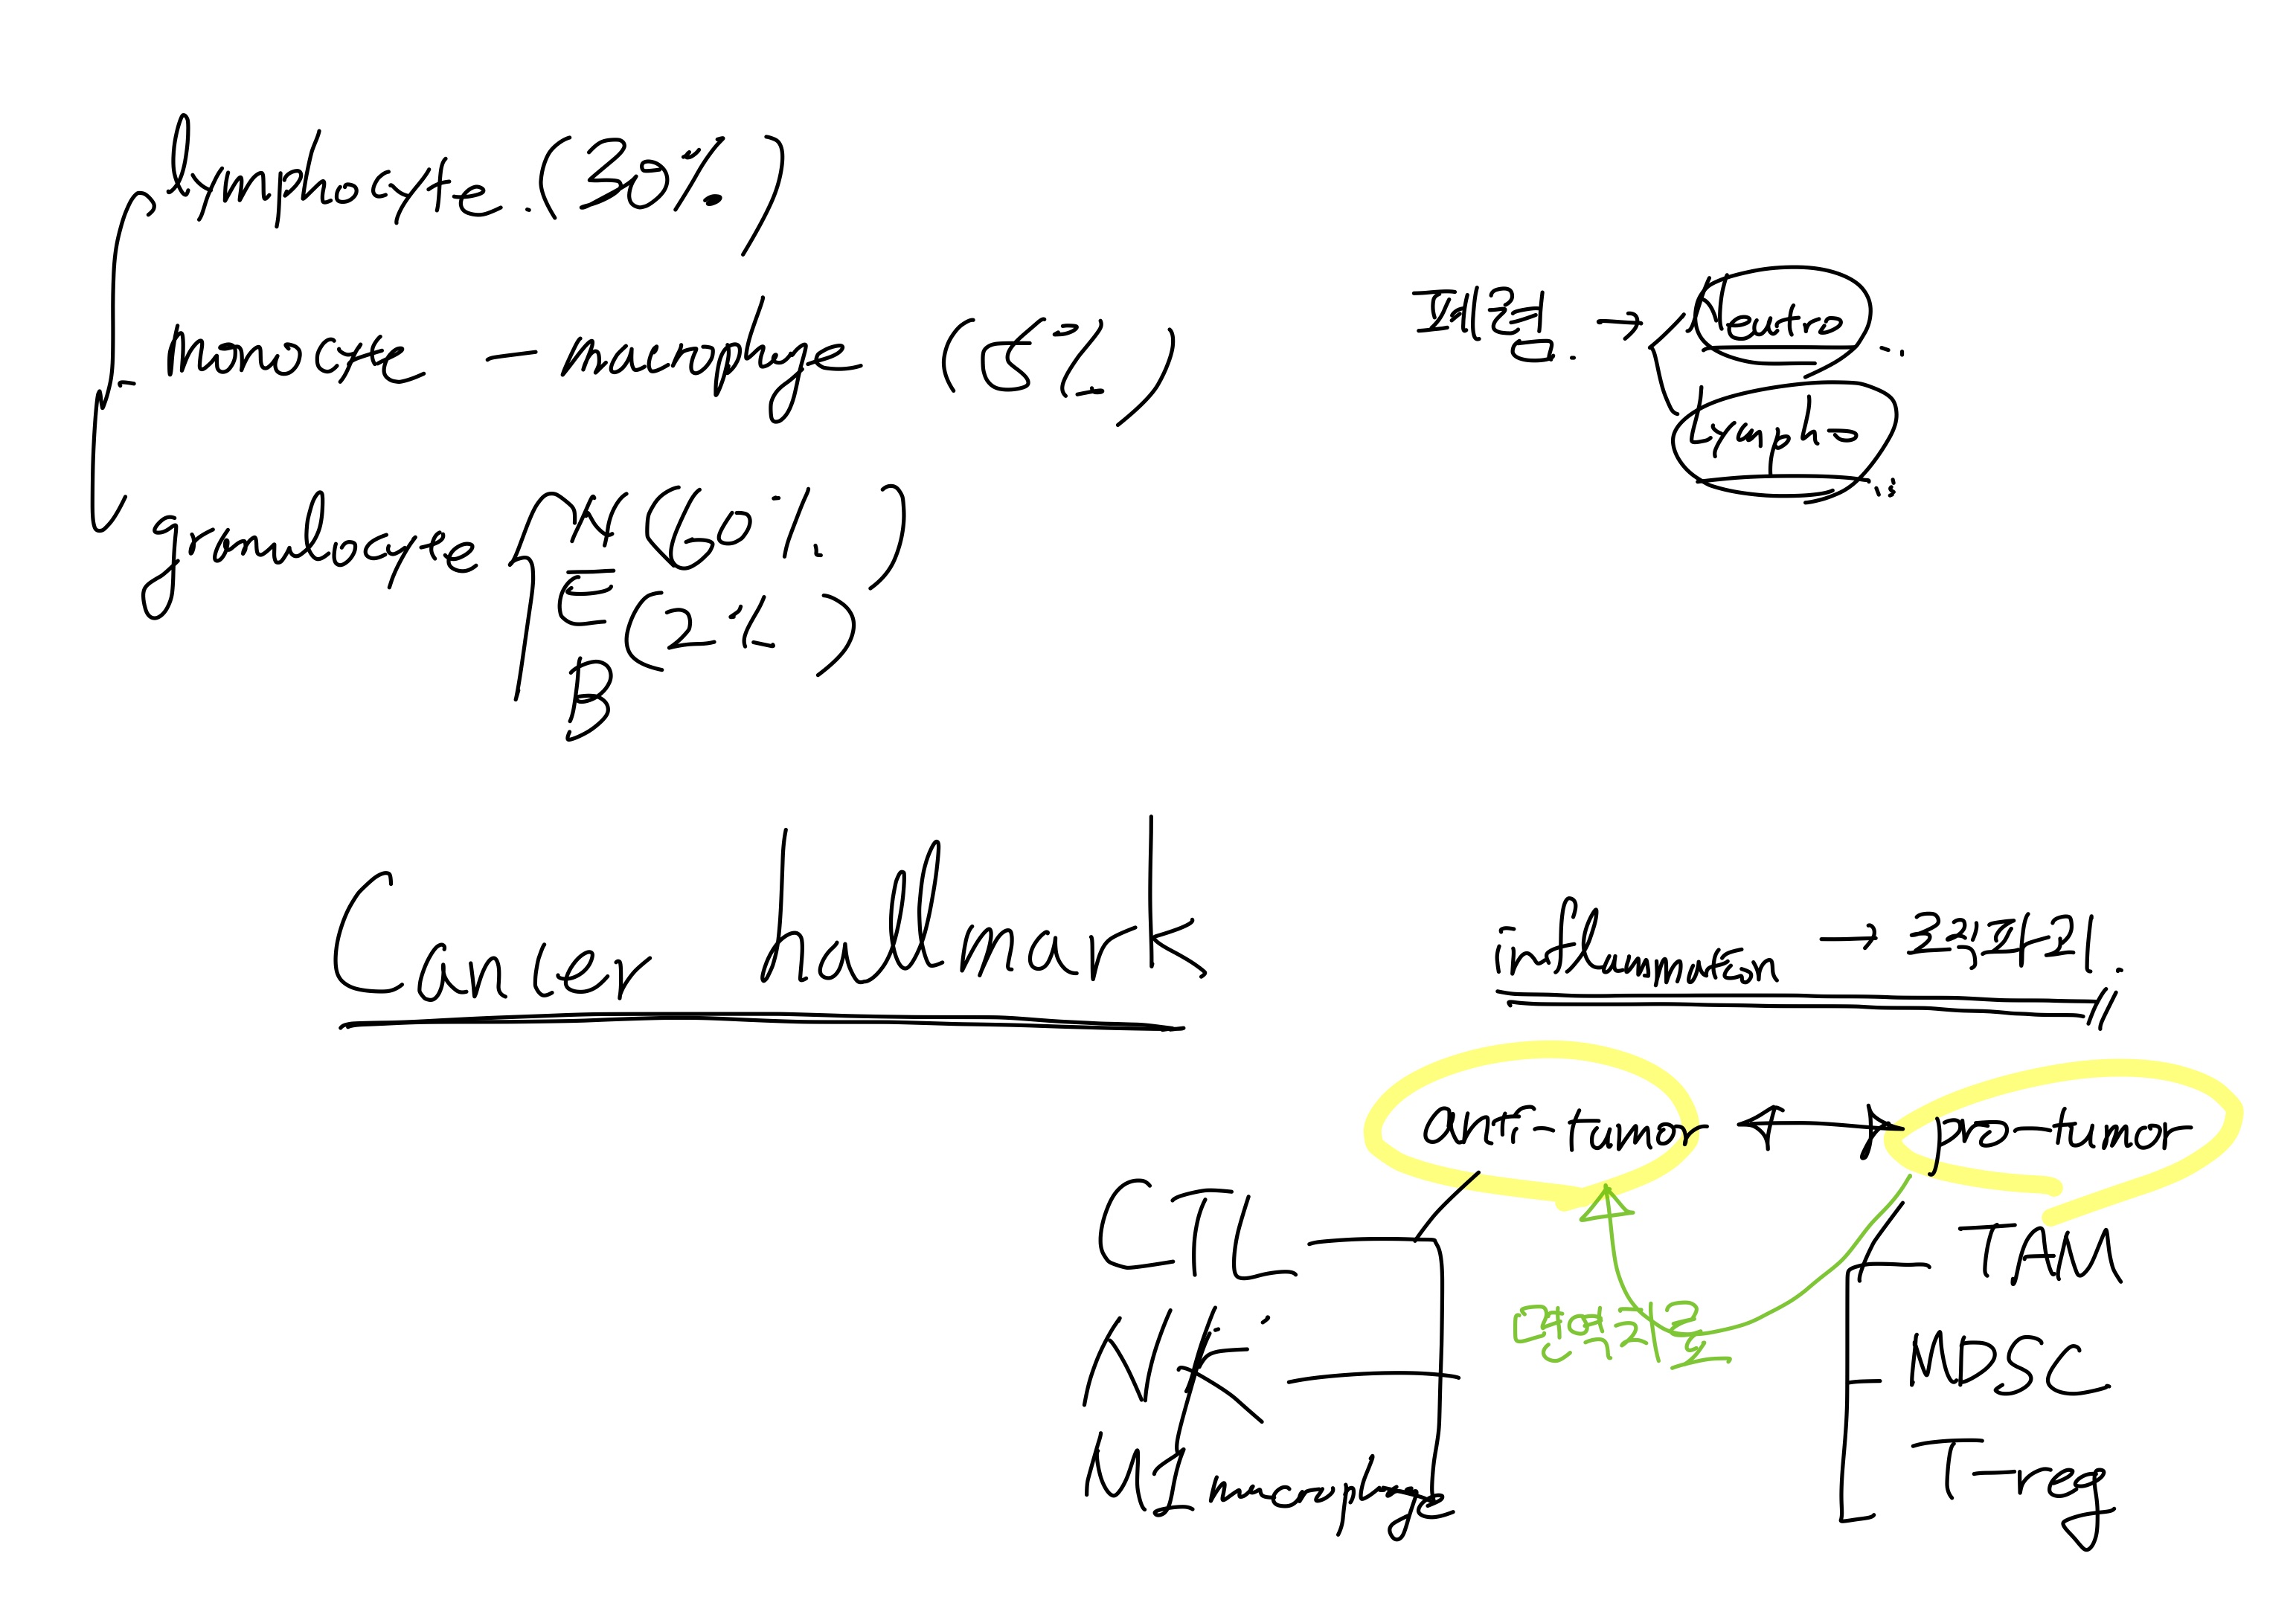 lymphocyte. (30%)
monocyte - macrophage (5%)
granulocyte N (60%)
E (2%)
B
폐렴. → Neutro
Lympho
Cancer hallmark
inflammation →
anti-tumor ↔ pro-tumor
CTL
NK
M1 macrophage
면역관문
TAM
MDSC
T-reg